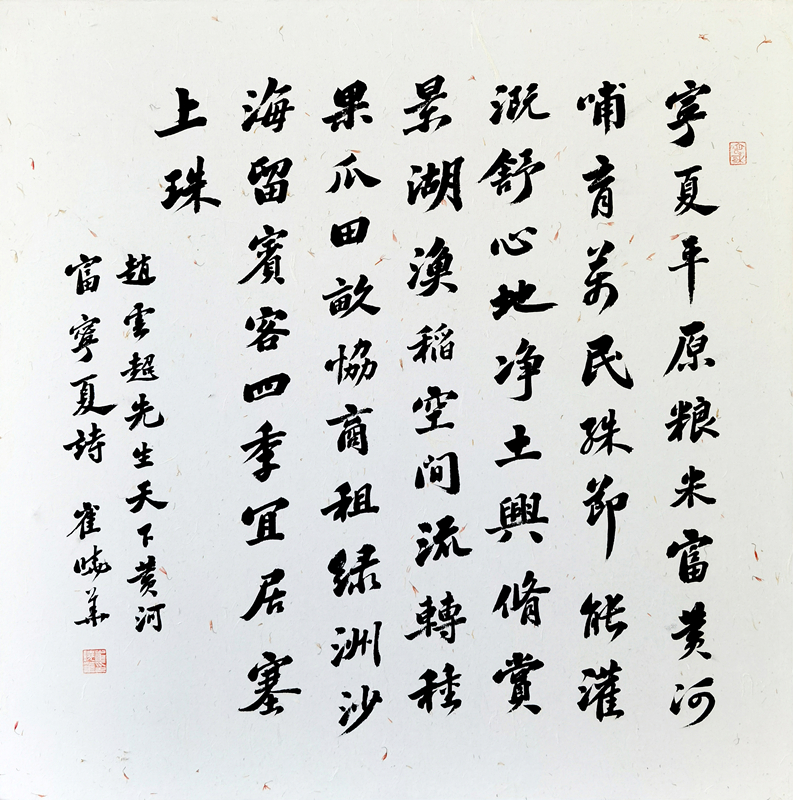 寧夏平原粮米富黄河
哺育萬民殊節能灌
溉舒心地净土興脩賞
景湖漁稻空間流轉種
果瓜田畝協商租緑洲沙
海留賓客四季宜居塞
上珠
趙雲超先生天下黄河
富寧夏詩 崔曉華